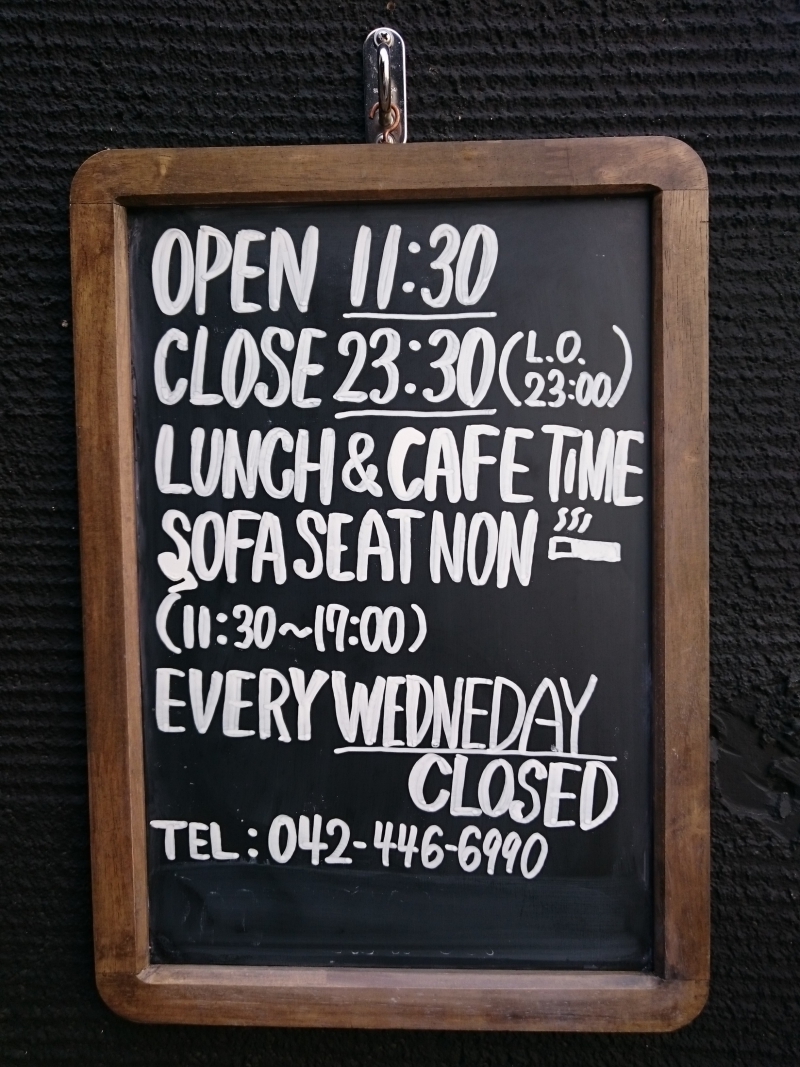 OPEN 11:30
CLOSE 23:30 (L.O. 23:00)
LUNCH & CAFE TIME
SOFA SEAT NON
(11:30~17:00)
EVERY WEDNEDAY
CLOSED
TEL: 042-446-6990